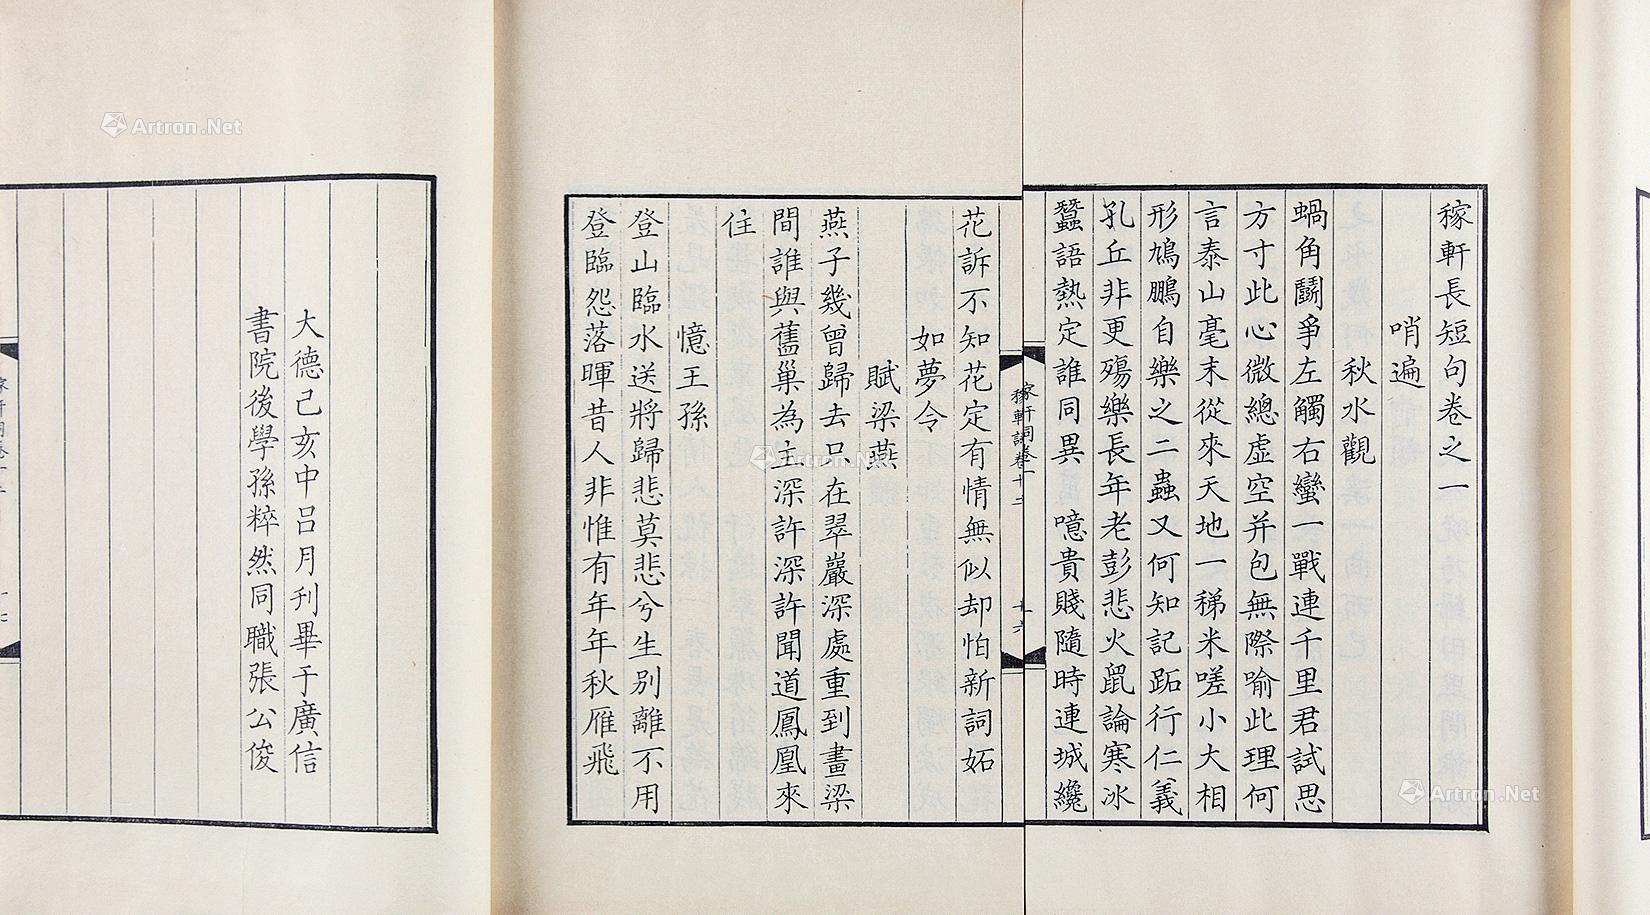 稼軒長短句卷之一
哨遍
秋水觀
蝸角鬭爭左觸右蠻一戰連千里君試思
方寸此心微總虛空并包無際喻此理何
言泰山毫末從來天地一稊米嗟小大相
形鳩鵬自樂之二蟲又何知記跖行仁義
孔丘非更殤樂長年老彭悲火鼠論寒冰
蠶語熱定誰同異 噫貴賤隨時連城纔
花訴不知花定有情無似却怕新詞妬
如夢令
賦梁燕
燕子幾曾歸去只在翠巖深處重到畫梁
間誰與舊巢為主深許深許聞道鳳凰來
住
憶王孫
登山臨水送將歸悲莫悲兮生別離不用
登臨怨落暉昔人非惟有年年秋雁飛
大德己亥中呂月刊畢于廣信
書院後學孫粹然同職張公俊
Artron.Net
Artron.Net
Artron.Net